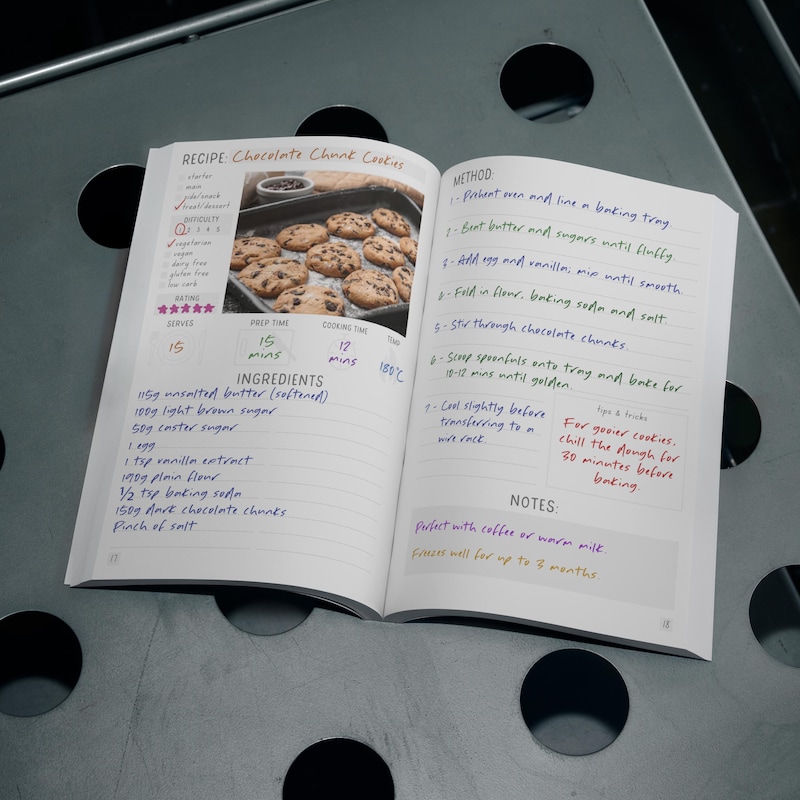 RECIPE: Chocolate Chunk Cookies
starter
main
side/snack
treat/dessert
DIFFICULTY
1 2 3 4 5
vegetarian
vegan
dairy free
gluten free
low carb
RATING
SERVES
15
PREP TIME
15
mins
COOKING TIME
12
mins
TEMP
180°C
INGREDIENTS
115g unsalted butter (softened)
100g light brown sugar
50g caster sugar
1 egg
1 tsp vanilla extract
190g plain flour
1/2 tsp baking soda
150g dark chocolate chunks
Pinch of salt
17
METHOD:
1 - Preheat oven and line a baking tray.
2 - Beat butter and sugars until fluffy.
3 - Add egg and vanilla; mix until smooth.
4 - Fold in flour, baking soda and salt.
5 - Stir through chocolate chunks.
6 - Scoop spoonfuls onto tray and bake for
10-12 mins until golden.
7 - Cool slightly before
transferring to a
wire rack.
tips & tricks
For gooier cookies,
chill the dough for
30 minutes before
baking.
NOTES:
Perfect with coffee or warm milk.
Freezes well for up to 3 months.
18